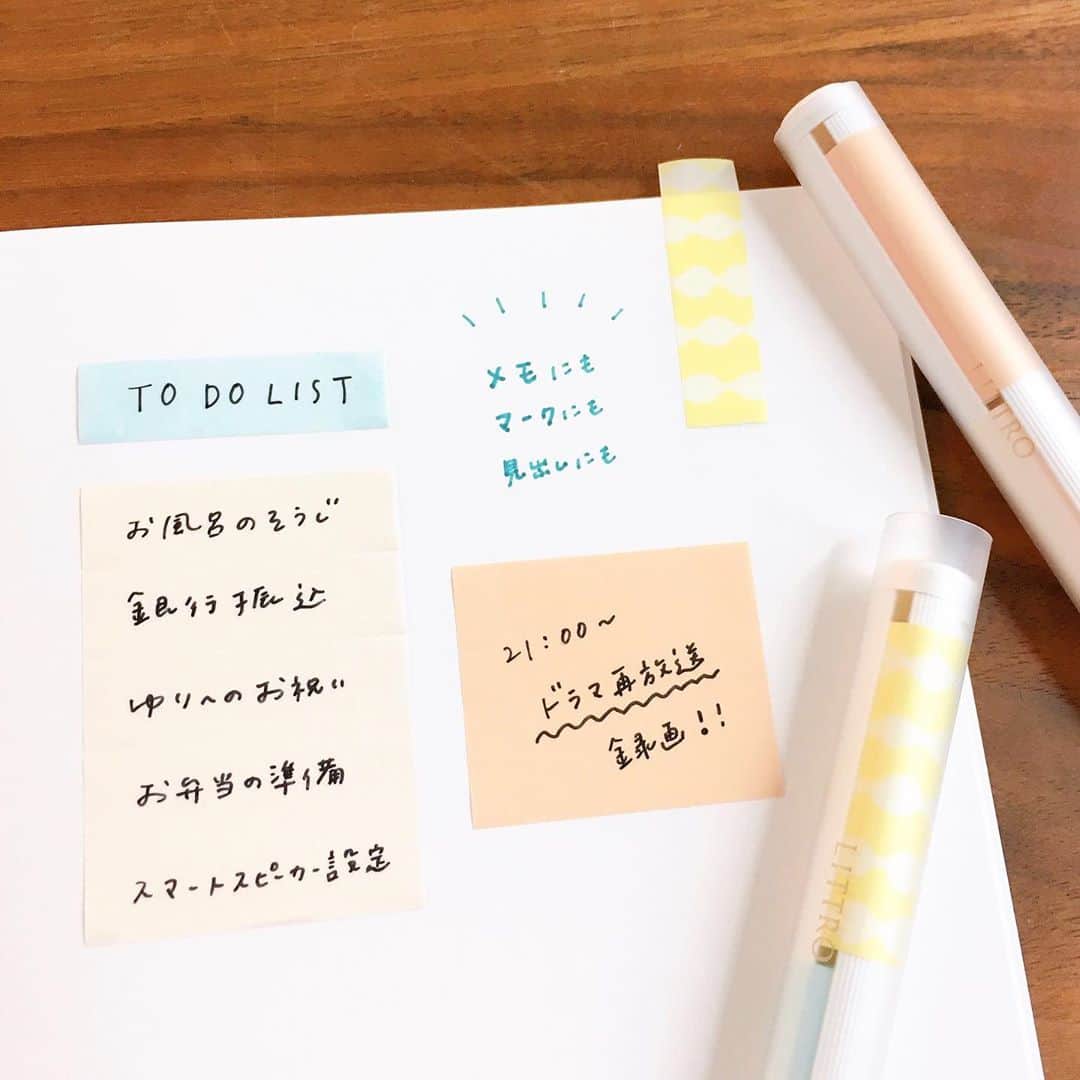 TO DO LIST
お風呂のそうじ
銀行振込
ゆりへのお祝い
お弁当の準備
スマートスピーカー設定
メモにも
マークにも
見出しにも
21:00~
ドラマ再放送
録画!!
LITTRO
LITTRO